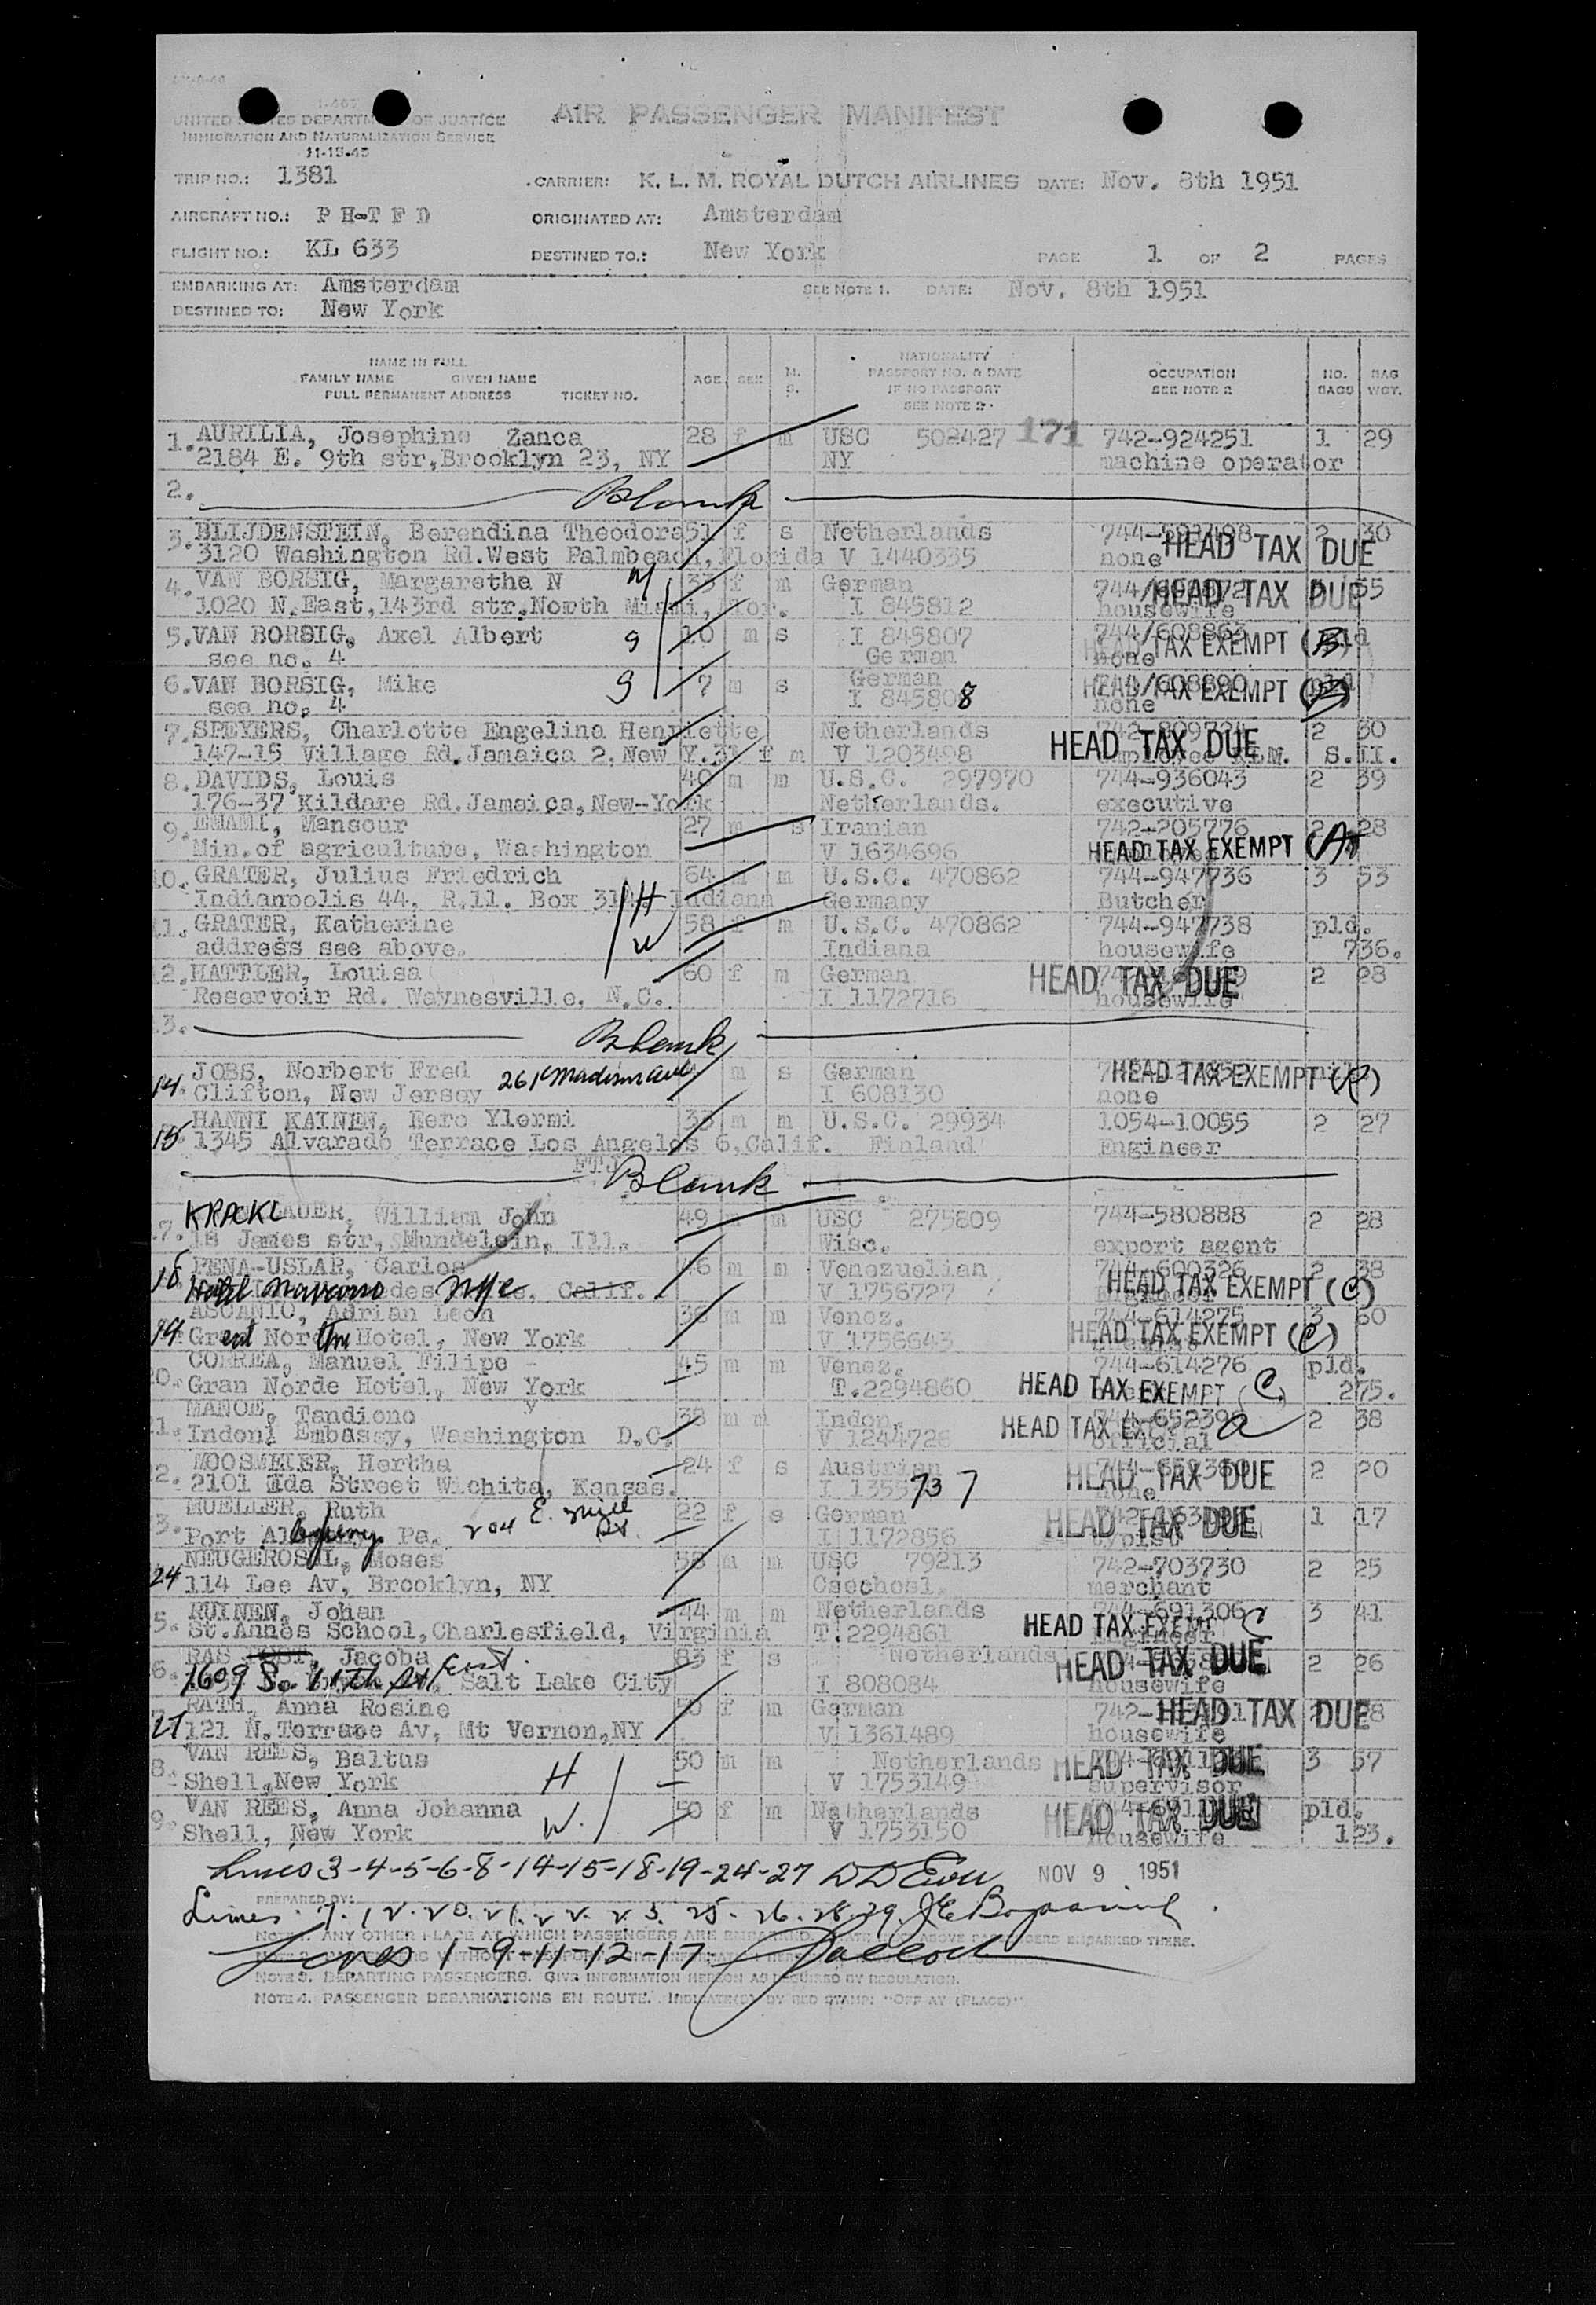 UNITED STATES DEPARTMENT OF JUSTICE
IMMIGRATION AND NATURALIZATION SERVICE
11-15-45
AIR PASSENGER MANIFEST
TRIP NO.: 1381 CARRIER: K. L. M. ROYAL DUTCH AIRLINES DATE: Nov. 8th 1951
AIRCRAFT NO.: P H-T F D ORIGINATED AT: Amsterdam
FLIGHT NO.: KL 633 DESTINED TO.: New York PAGE 1 OF 2 PAGES
EMBARKING AT: Amsterdam SEE NOTE 1. DATE: Nov. 8th 1951
DESTINED TO: New York
NAME IN FULL
FAMILY NAME GIVEN NAME
FULL PERMANENT ADDRESS TICKET NO.
AGE SEX M. S.
NATIONALITY
PASSPORT NO. & DATE
IF NO PASSPORT
SEE NOTE 2
OCCUPATION
SEE NOTE 2
NO. BAGS
BAG WGT.
1. AURILIA, Josephine Zanca 28 f m USC 502427 171 742-924251 1 29
2184 E. 9th str, Brooklyn 23, NY NY machine operator
2. Blank
3. BLIJDENSTEIN, Berendina Theodora 51 f s Netherlands 2 30
3120 Washington Rd. West Palmbeach, Florida V 1440335 none HEAD TAX DUE
4. VAN BORSIG, Margarethe N M 33 f m German HEAD TAX DUE 55
1020 N. East, 143rd str. North Miami, Flor. I 845812 housewife
5. VAN BORSIG, Axel Albert S 10 m s I 845807 744/608863
see no. 4 German none HEAD TAX EXEMPT (B)
6. VAN BORSIG, Mike S 7 m s German 744/608890 pld
see no. 4 I 845808 none HEAD TAX EXEMPT (B)
7. SPEYERS, Charlotte Engelina Henriette Netherlands 2 30
147-15 Village Rd. Jamaica 2, New Y. 31 f m V 1203498 HEAD TAX DUE S.II.
8. DAVIDS, Louis 40 m m U.S.C. 297970 744-936043 2 39
176-37 Kildare Rd. Jamaica, New-York Netherlands. executive
9. EMAMI, Mansour 27 m s Iranian 742-205776 2 28
Min. of agriculture, Washington V 1634696 HEAD TAX EXEMPT (A)
10. GRATER, Julius Friedrich H 64 m m U.S.C. 470862 744-947736 3 53
Indianpolis 44, R.11. Box 314 Indiana Germany Butcher
11. GRATER, Katherine W 58 f m U.S.C. 470862 744-947738 pld.
address see above. Indiana housewife 736.
12. HATTLER, Louisa 60 f m German HEAD TAX DUE 2 28
Reservoir Rd. Waynesville, N.C. I 1172716 housewife
13. Blank
14. JOBS, Norbert Fred m s German HEAD TAX EXEMPT
Clifton, New Jersey 261 Madison Ave I 608130 none
15. HANNI KAINEN, Eero Ylermi 33 m m U.S.C. 29934 1054-10055 2 27
1345 Alvarado Terrace Los Angeles 6, Calif. Finland Engineer
Blank
KRACKL AUER, William John 49 m m USC 275809 744-580888 2 28
17. 18 James str, Mundelein, Ill. Wisc. export agent
18. PENA-USLAR, Carlos 46 m m Venezuelian 744-600326 2 38
Hotel Navarro NYC Calif. V 1756727 HEAD TAX EXEMPT (C)
19. ASCANIO, Adrian Leon 36 m m Venez. 744-614275 3 60
Great Northn Hotel, New York V 1756643 HEAD TAX EXEMPT (C)
20. CORREA, Manuel Filipo 45 m m Venez. 744-614276 pld.
Gran Norde Hotel, New York T.2294860 HEAD TAX EXEMPT (C) 275.
21. MANOE, Tandiono 38 m m Indon. 2 38
Indoni Embassy, Washington D.C. V 1244726 HEAD TAX EXE a official
22. MOOSMEIER, Hertha 24 f s Austrian 2 20
2101 Ida Street Wichita, Kansas. I 1355737 none HEAD TAX DUE
23. MUELLER, Ruth 204 E. Mill St. 22 f s German 1 17
Port Allegheny Pa. I 1172856 typist HEAD TAX DUE
24 NEUGEROSHL, Moses 58 m m USC 79213 742-703730 2 25
114 Lee Av, Brooklyn, NY Csechosl. merchant
25. RUINEN, Johan 44 m m Netherlands 744-691306 3 41
St. Annes School, Charlesfield, Virginia T.2294861 HEAD TAX EXEMPT C
26. RAS Jacoba 83 f s Netherlands HEAD TAX DUE 2 26
1609 So. 11th St East. Salt Lake City I 808084 housewife
27 RATH, Anna Rosine 50 f m German HEAD TAX DUE
121 N. Terrace Av, Mt Vernon, NY V 1361489 housewife
28. VAN REES, Baltus H 50 m m Netherlands HEAD TAX DUE 3 57
Shell, New York V 1753149 supervisor
29. VAN REES, Anna Johanna W. 50 f m Netherlands HEAD TAX DUE pld.
Shell, New York V 1753150 housewife 123.
Lines 3-4-5-6-8-14-15-18-19-24-27 NOV 9 1951
PREPARED BY:
Lines 7. 12. 20. 21. 22. 23. 25. 26. 28. 29.
NOTE 1. ANY OTHER PLACE AT WHICH PASSENGERS ARE EMBARKED. ABOVE PASSENGERS EMBARKED THERE.
Lines 1-9-11-12-17
NOTE 3. DEPARTING PASSENGERS. GIVE INFORMATION HEREON AS REQUIRED BY REGULATION.
NOTE 4. PASSENGER DEBARKATIONS EN ROUTE. INDICATE(S) BY RED STAMP: "OFF AT (PLACE)"